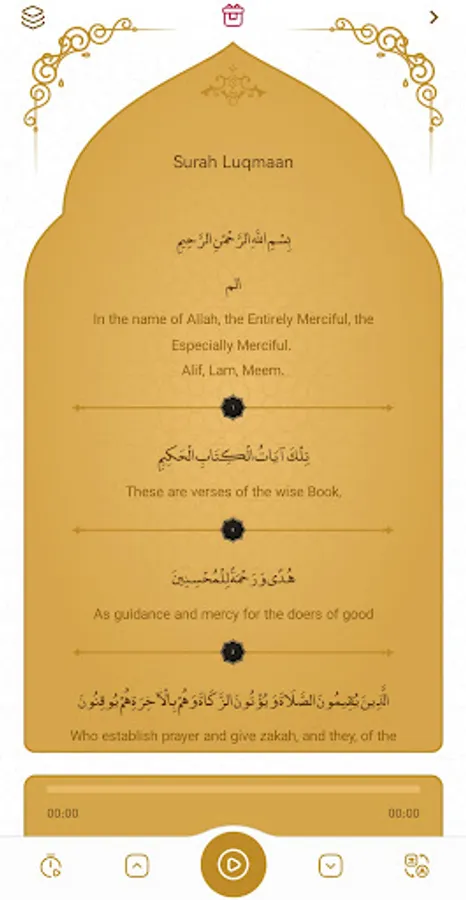 Surah Luqmaan
بِسْمِ اللَّهِ الرَّحْمَٰنِ الرَّحِيمِ
الم
In the name of Allah, the Entirely Merciful, the
Especially Merciful.
Alif, Lam, Meem.
تِلْكَ آيَاتُ الْكِتَابِ الْحَكِيمِ
These are verses of the wise Book,
هُدًى وَرَحْمَةً لِلْمُحْسِنِينَ
As guidance and mercy for the doers of good
الَّذِينَ يُقِيمُونَ الصَّلَاةَ وَيُؤْتُونَ الزَّكَاةَ وَهُمْ بِالْآخِرَةِ هُمْ يُوقِنُونَ
Who establish prayer and give zakah, and they, of the
00:00 00:00